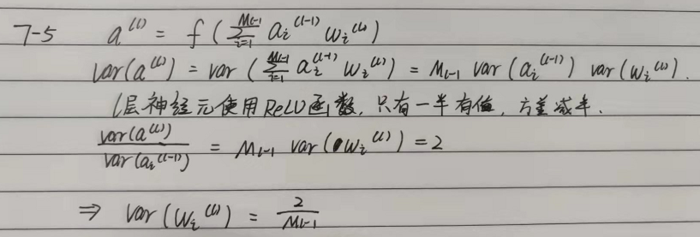 7-5 a^(l) = f ( Σ_{i=1}^{M_{l-1}} a_i^(l-1) w_i^(l) )
Var(a^(l)) = var ( Σ_{i=1}^{M_{l-1}} a_i^(l-1) w_i^(l) ) = M_{l-1} var(a_i^(l-1)) var(w_i^(l)).
l层神经元使用ReLU函数,只有一半有值,方差减半.
var(a^(l)) / var(a_i^(l-1)) = M_{l-1} var(w_i^(l)) = 2
⇒ var(w_i^(l)) = 2 / M_{l-1}